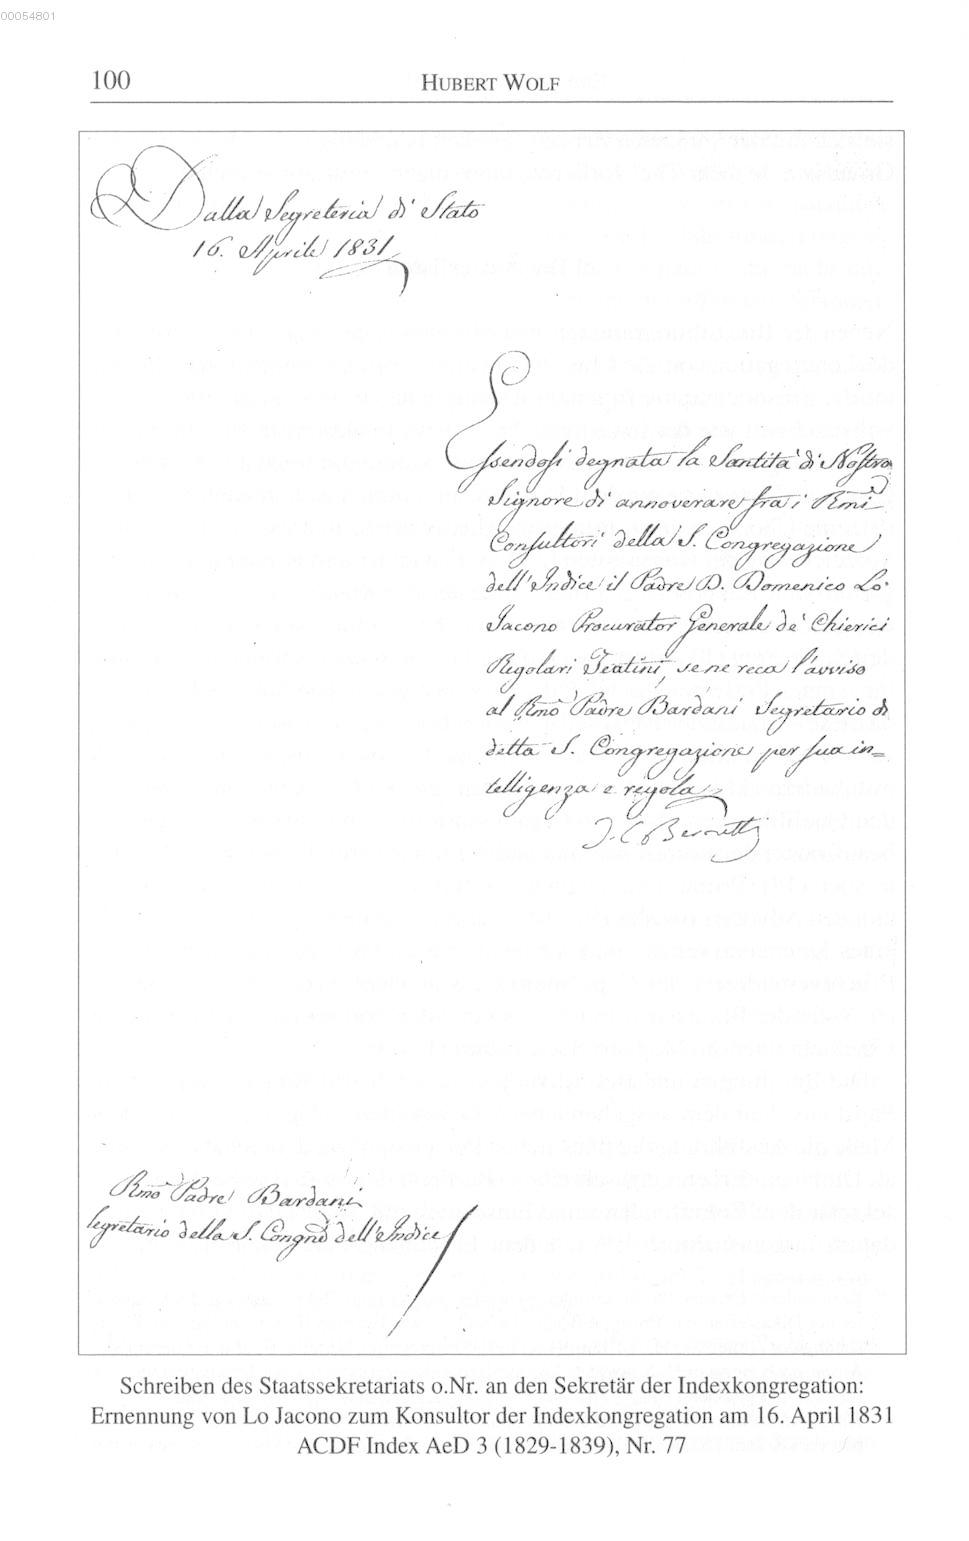 00054801
100
HUBERT WOLF
Dalla Segreteria di Stato
16. Aprile 1831
Essendosi degnata la Santità di Nostro
Signore di annoverare fra i Rmi
Consultori della S. Congregazione
dell'Indice il Padre D. Domenico Lo
Jacono Procurator Generale de' Chierici
Regolari Teatini, se ne reca l'avviso
al Rmo Padre Bardani Segretario di
detta S. Congregazione per sua in=
telligenza e regola
Bernetti
Rmo Padre Bardani
Segretario della S. Congne dell'Indice
Schreiben des Staatssekretariats o.Nr. an den Sekretär der Indexkongregation:
Ernennung von Lo Jacono zum Konsultor der Indexkongregation am 16. April 1831
ACDF Index AeD 3 (1829-1839), Nr. 77